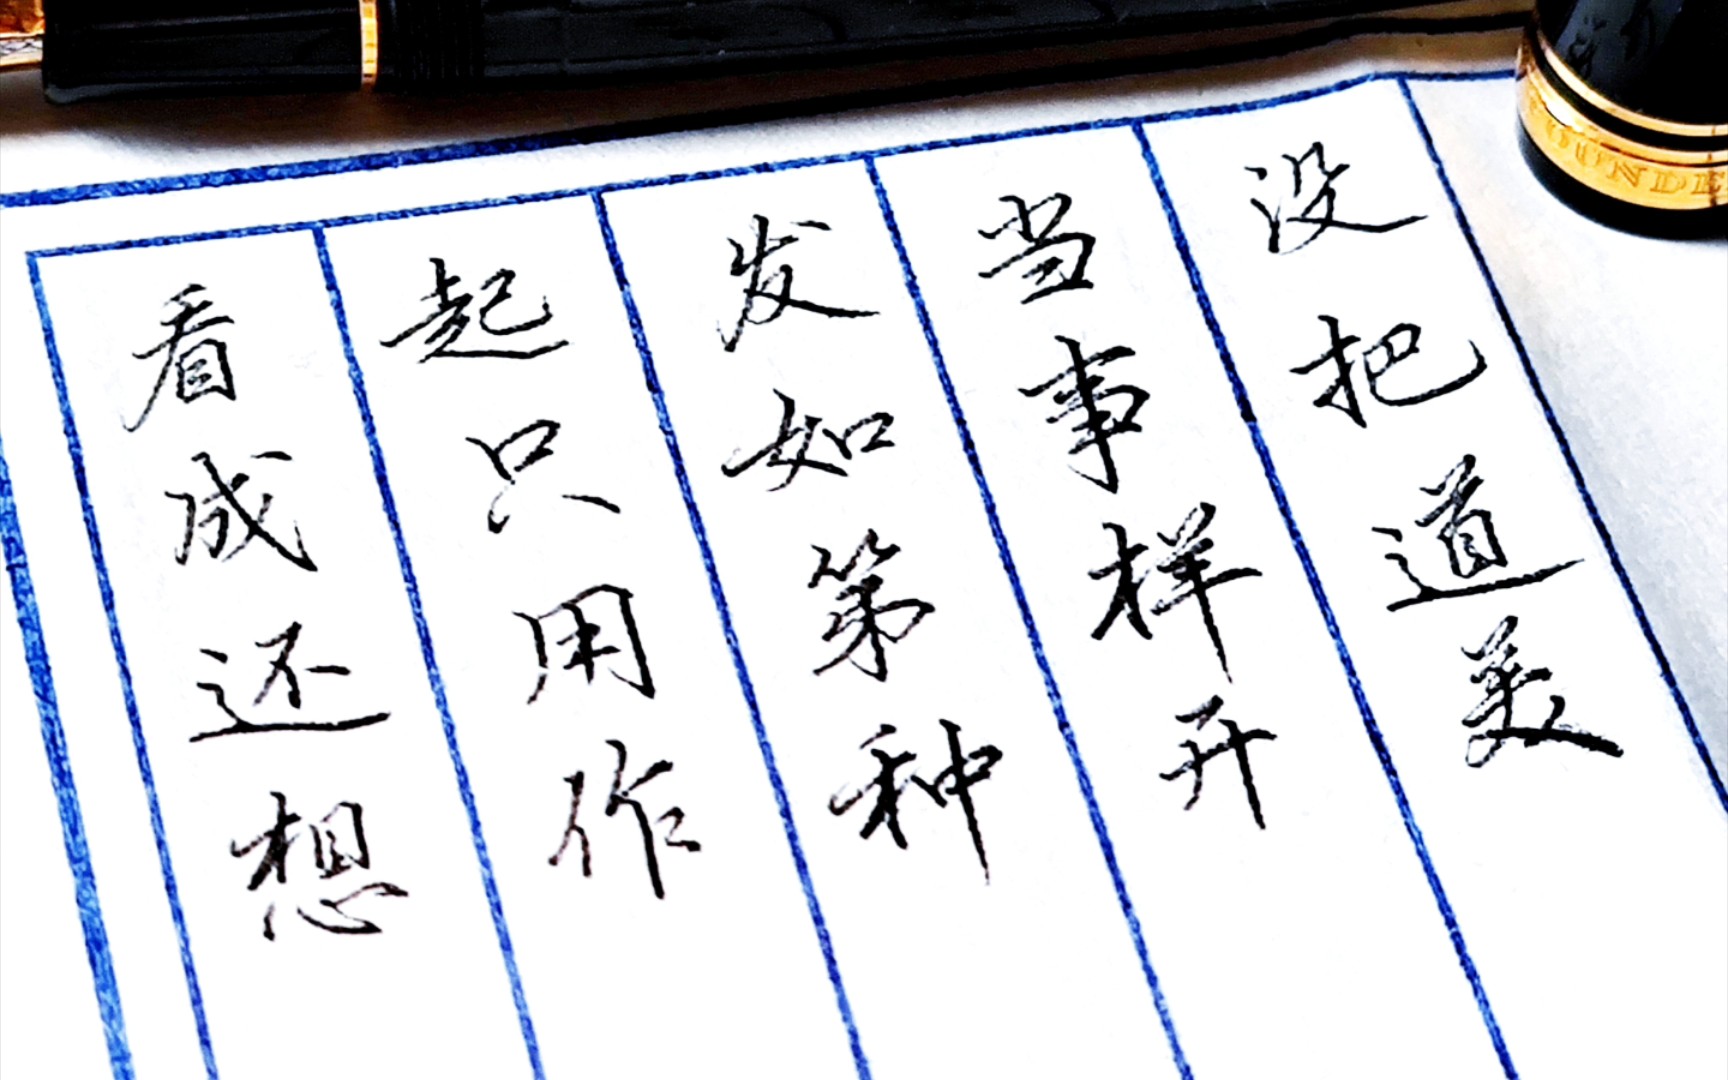 没把道美
当事样开
发如第种
起只用作
看成还想
OUNDE